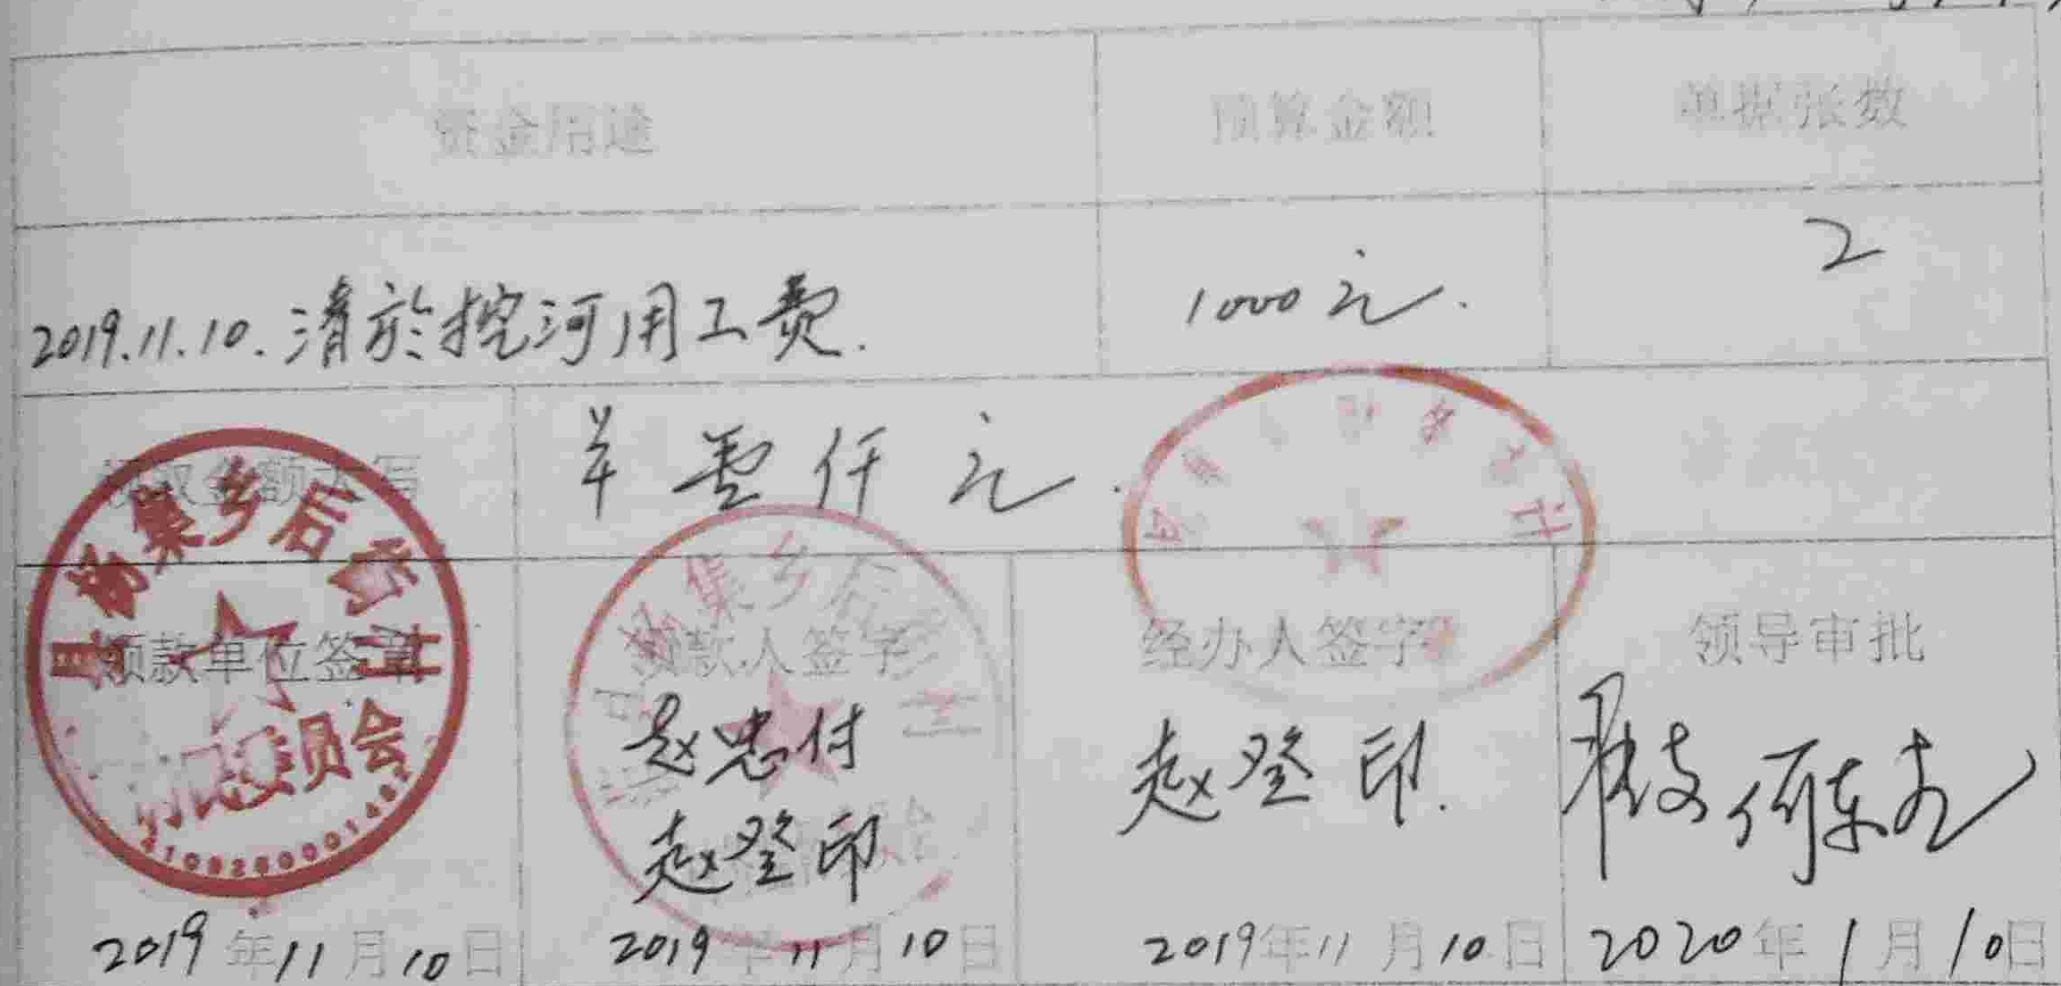 资金用途 预算金额 单据张数
2019.11.10.清於挖河用工费. 1000元. 2
领取金额大写 羊壹仟元.
集乡后
委员会
领款单位签章 领款人签字 经办人签字 领导审批
集乡后
赵忠付 赵登印.
赵登印
2019年11月10日 2019年11月10日 2019年11月10日 2020年1月10日